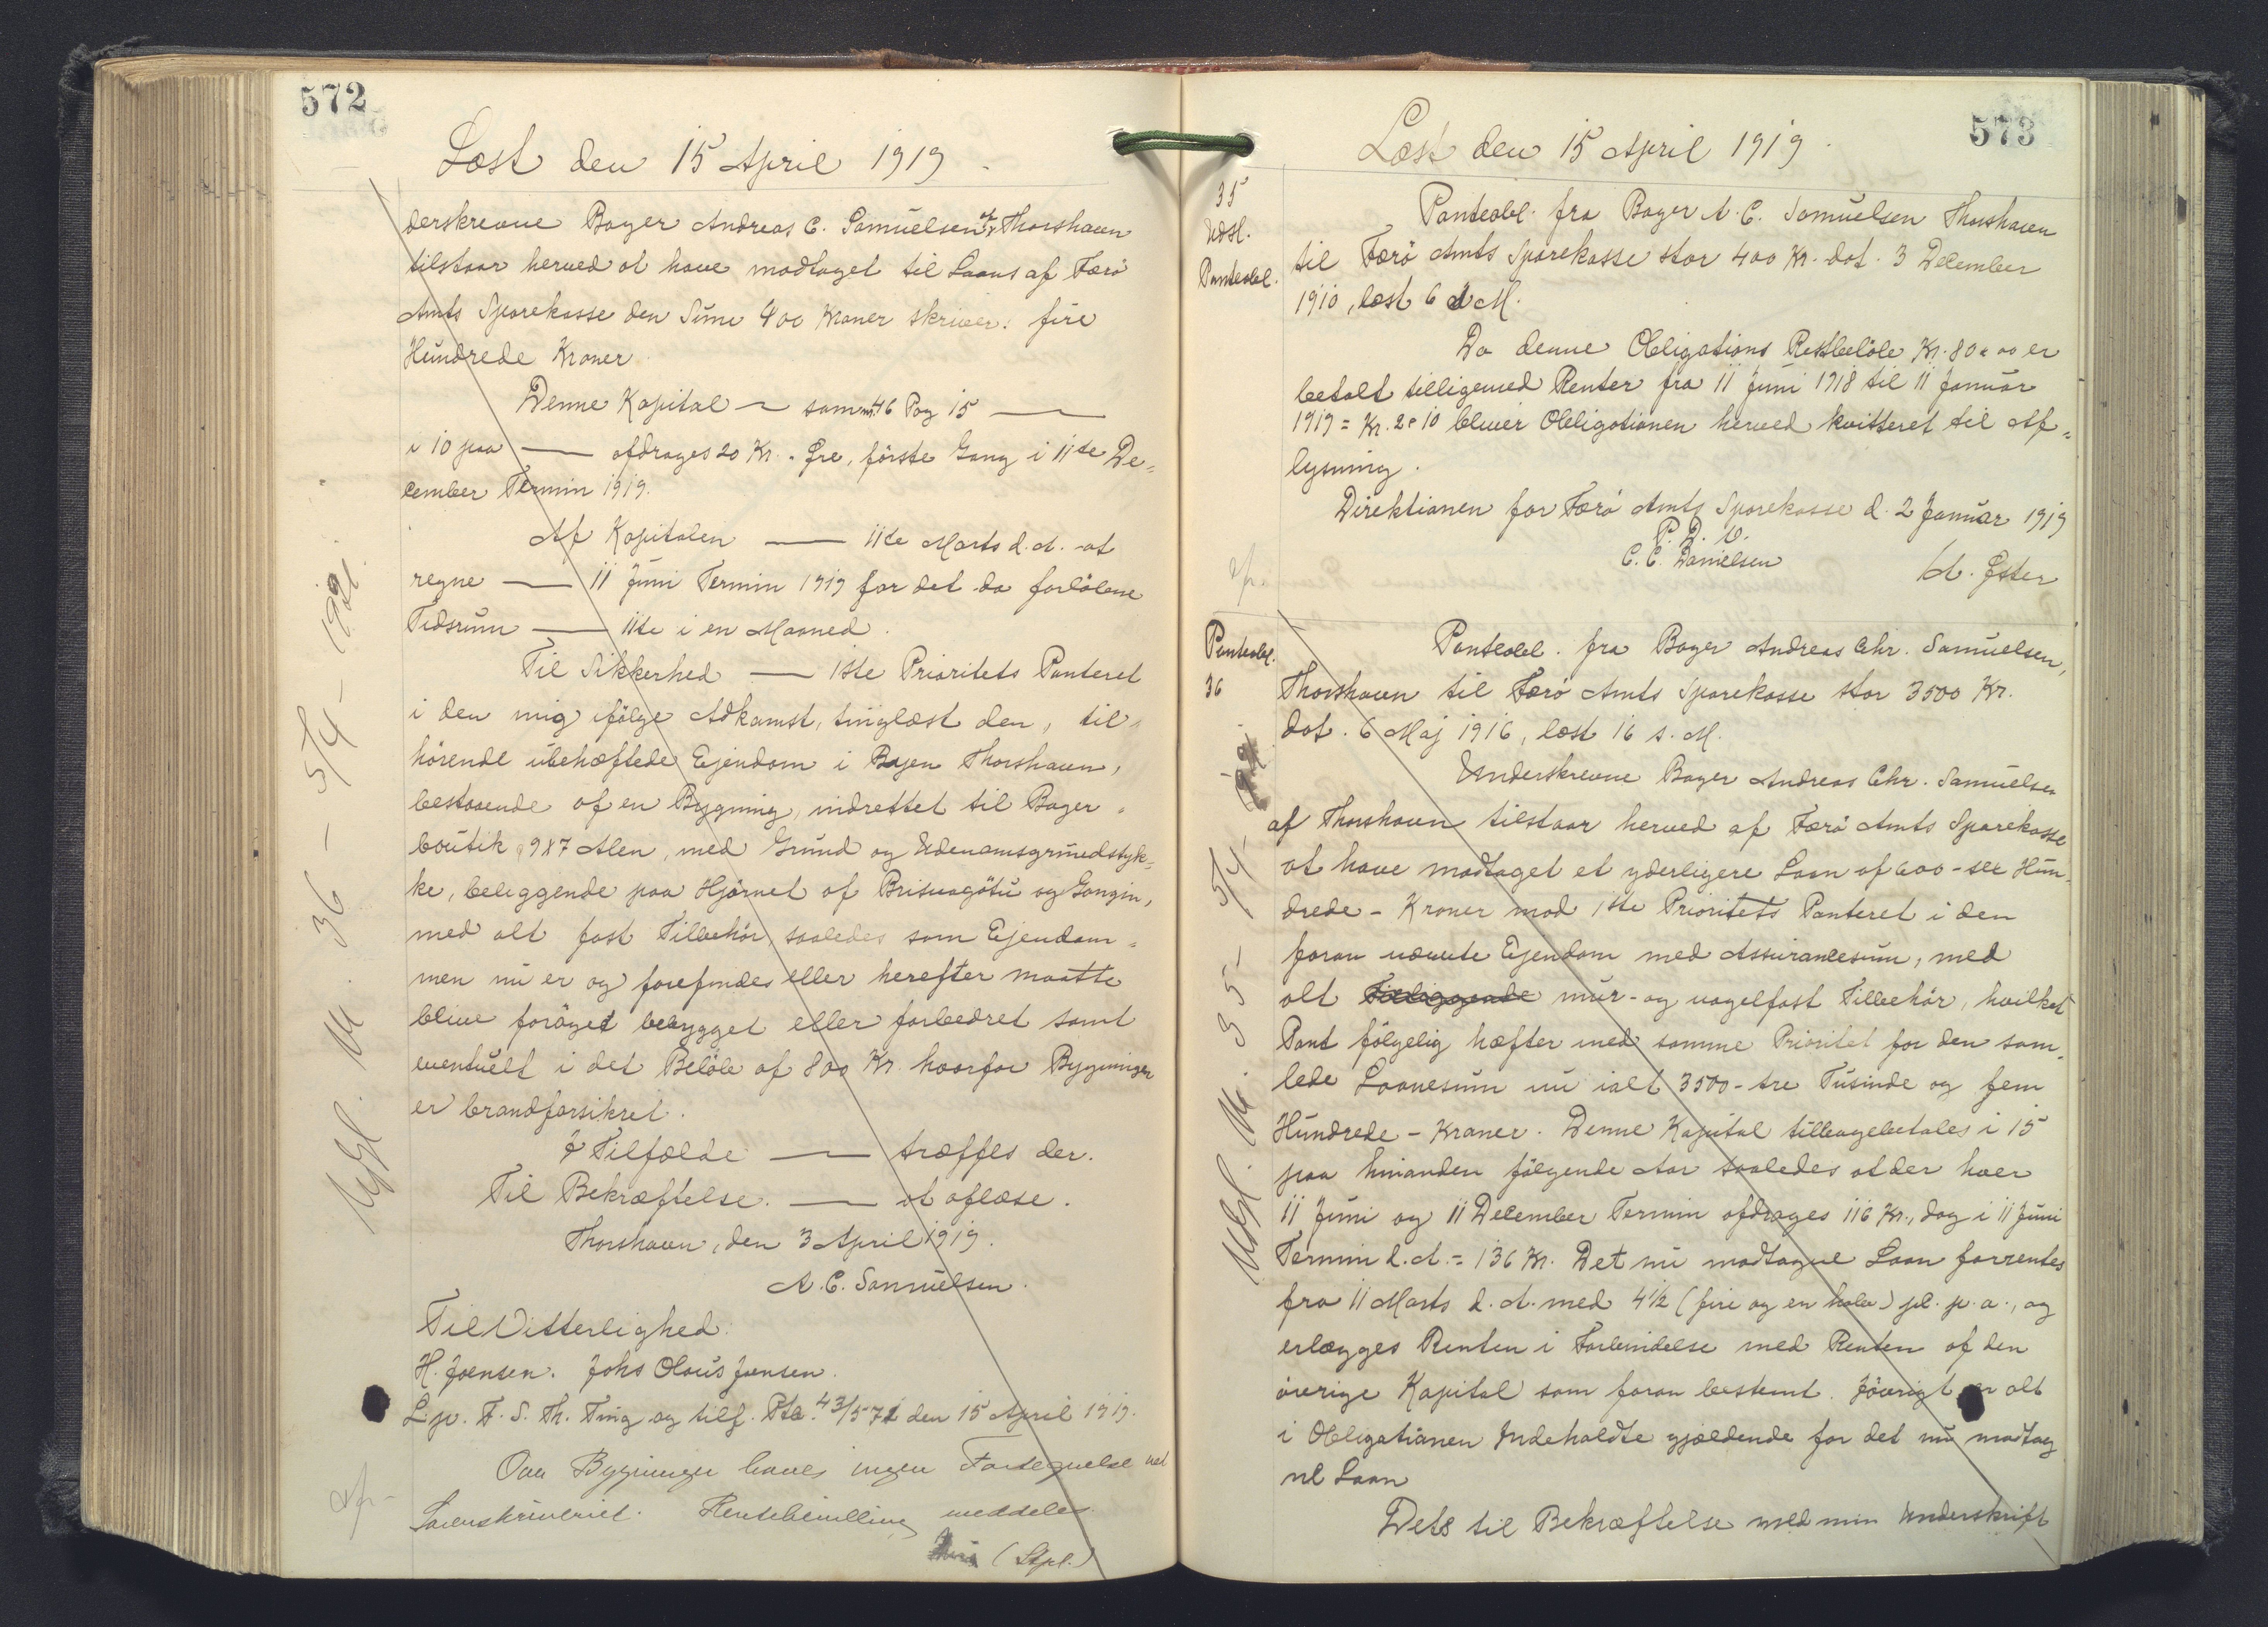 572
Læst den 15 April 1919
derskrevne Bager Andreas C. Samuelsen af Thorshavn
tilstaar herved at have modtaget til Laans af Færö
Amts Sparekasse den Sum 400 Kroner skriver: fire
Hundrede Kroner
Denne Kapital — som m 46 Pag 15 —
i 10 paa — afdrages 20 Kr. Øre, förste Gang i 11te De=
cember Termin 1919.
Af Kapitalen — 11te Marts d. A. at
regne — 11 Juni Termin 1919 for det da forlöbne
Tidsrum — 11te i en Maaned.
Til Sikkerhed — 1ste Prioritets Panteret
i den mig ifölge Adkomst, tinglæst den, til=
hörende ubehæftede Ejendom i Byen Thorshavn,
bestaaende af en Bygning, indrettet til Bager=
boutik 9x7 Alen, med Grund og Udenomsgrundstyk=
ke, beliggende paa Hjörnet af Bringsnagøtu og Gongin,
med alt fast Tilbehör, saaledes som Ejendom=
men nu er og forefindes eller herefter maatte
blive foröget bebygget eller forbedret samt
eventuelt i det Belöb af 800 Kr. hvorfor Bygningen
er brandforsikret.
I Tilfælde — træffes der.
Til Bekræftelse. — at aflæse.
Thorshavn, den 3 April 1919.
A. C. Samuelsen.
Til Vitterlighed
H. Joensen. Johs Olaus Joensen.
L. p. F. S. Th. Ting og tilf. Ptb. 43/571 den 15 April 1919.
Om Bygningen haves ingen Fortegnelse ved
Sorenskriveriet. Rentebevilling meddeles.
(Stpl.)
Afr
Udsl. M. 36 – 5/4 – 1921.
573
Læst den 15 April 1919.
35
Udsl.
Panteobl.
Panteobl. fra Bager A. C. Samuelsen Thorshavn
til Færö Amts Sparekasse stor 400 Kr. dat. 3 December
1910, læst 6 d. M.
Da denne Obligations Restbelöb Kr. 80 " 00 er
betalt tilligemed Renter fra 11 Juni 1918 til 11 Januar
1919 = Kr. 2 " 10 bliver Obligationen herved kvitteret til Af=
lysning.
Direktionen for Færö Amts Sparekasse d. 2 Januar 1919
P. D. V.
C. C. Danielsen
/A. Øster
Afr.
Panteobl.
36
Panteobl. fra Bager Andreas Chr. Samuelsen,
Thorshavn til Færö Amts Sparekasse stor 3500 Kr.
dat. 6 Maj 1916, læst 16 s. M.
Underskrevne Bager Andreas Chr. Samuelsen
af Thorshavn tilstaar herved af Færö Amts Sparekasse
at have modtaget et yderligere Laan af 600 - sex Hun=
drede - Kroner mod 1ste Prioritets Panteret i den
foran nævnte Ejendom med Assurancesum, med
alt Tilliggende mur- og nagelfast Tilbehör, hvilket
Pant fölgelig hæfter med samme Prioritet for den sam=
lede Laanesum nu ialt 3500 - tre Tusinde og fem
Hundrede - Kroner. Denne Kapital tilbagebetales i 15
paa hinanden fölgende Aar saaledes at der hver
11 Juni og 11 December Termin afdrages 116 Kr., dog i 11 Juni
Termin d. A. = 136 Kr. Det nu modtagne Laan forrentes
fra 11 Marts d. A. med 4½ (fire og en halv) pct. p. a., og
erlægges Renten i Forbindelse med Renten af den
övrige Kapital som foran bestemt. Iövrigt er alt
i Obligationen Indeholdte gjældende for det nu modtag
ne Laan
Dets til Bekræftelse med min Underskrift
Udsl. M. 35 – 5/4 –